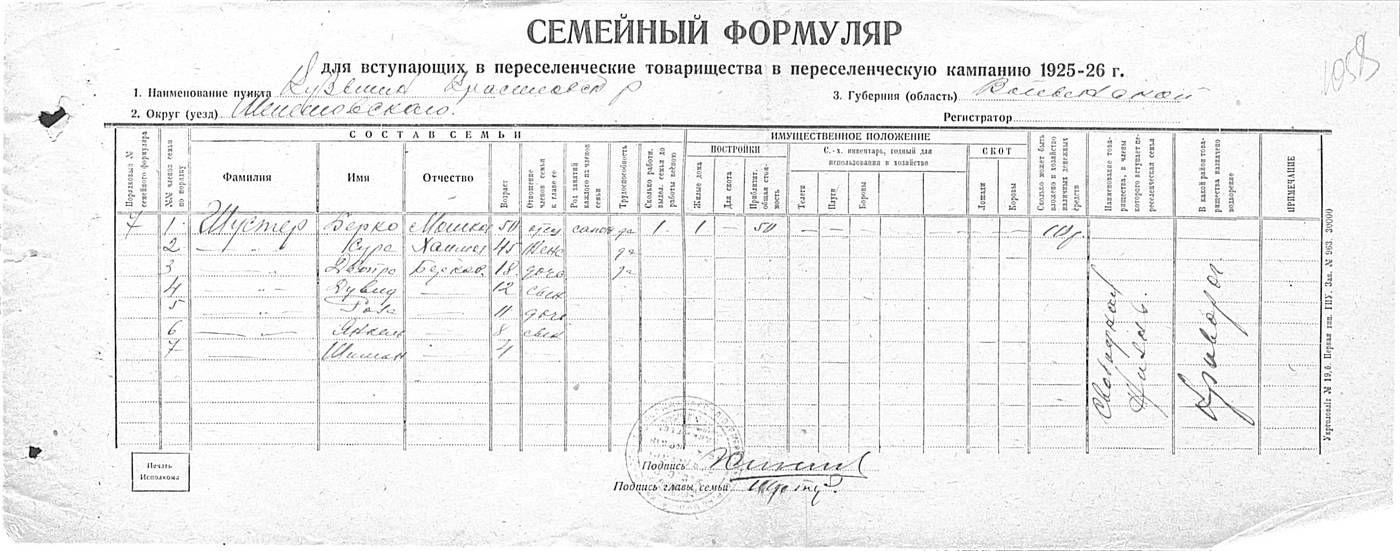 СЕМЕЙНЫЙ ФОРМУЛЯР
для вступающих в переселенческие товарищества в переселенческую кампанию 1925-26 г.
1058
1. Наименование пункта
3. Губерния (область) Волынской
2. Округ (уезд) Шепетовского.
Регистратор
Порядковый № семейного формуляра
№№ членов семьи по порядку
СОСТАВ СЕМЬИ
Фамилия
Имя
Отчество
Возраст
Отношение членов семьи к главе ее
Род занятий каждого из членов семьи
Трудоспособность
Сколько работн. выдел. семьи до работы военного
ИМУЩЕСТВЕННОЕ ПОЛОЖЕНИЕ
ПОСТРОЙКИ
Жилые дома
Для скота
Приблизит. общая стоимость
С.-х. инвентарь, годный для использования в хозяйстве
Телеги
Плуги
Бороны
СКОТ
Лошади
Коровы
Сколько может быть вложено в хозяйство наличных денежных средств
Наименование товарищества, в члены которого вступает переселенческая семья
В какой район товарищества назначено водворение
ПРИМЕЧАНИЕ
7 1 Шустер Берко Мошков 50 отец сапож да 1 1 — 50 — — — — —
2 — " — Сура Хаимов 45 жена да
3 — " — Двойра Берков 18 дочь да
4 — " — Дувид — 12 сын
5 — " — — 11 дочь
6 — " — Янкель — 8 сын
7 — Шиман — 4
Свободная Жизнь.
Криворог.
Печать Исполкома
Подпись
Подпись главы семьи Шустер
Зак. № 963. 30000